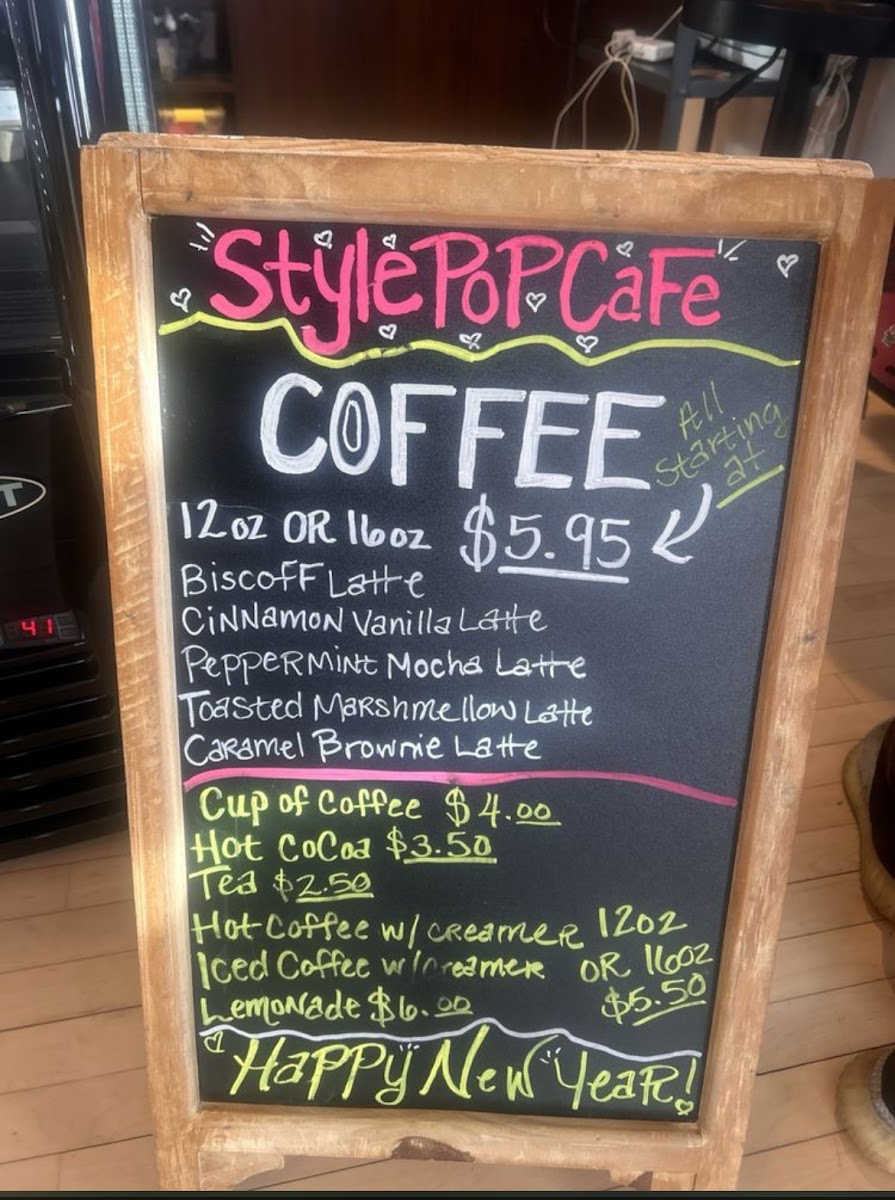 StylePoPCaFe
COFFEE
All
starting
at
12oz OR 16oz $5.95
BiscoFF Latte
CiNNamoN Vanilla Latte
PePPeRMiNt Mocha Latte
Toasted MaRshmellow Latte
CaRamel BRownie Latte
Cup of Coffee $4.00
Hot CoCoa $3.50
Tea $2.50
Hot Coffee w/ CReameR 12oz
Iced Coffee w/Creamer OR 16oz
Lemonade $6.00 $5.50
HaPPy New YeaR!
T
41